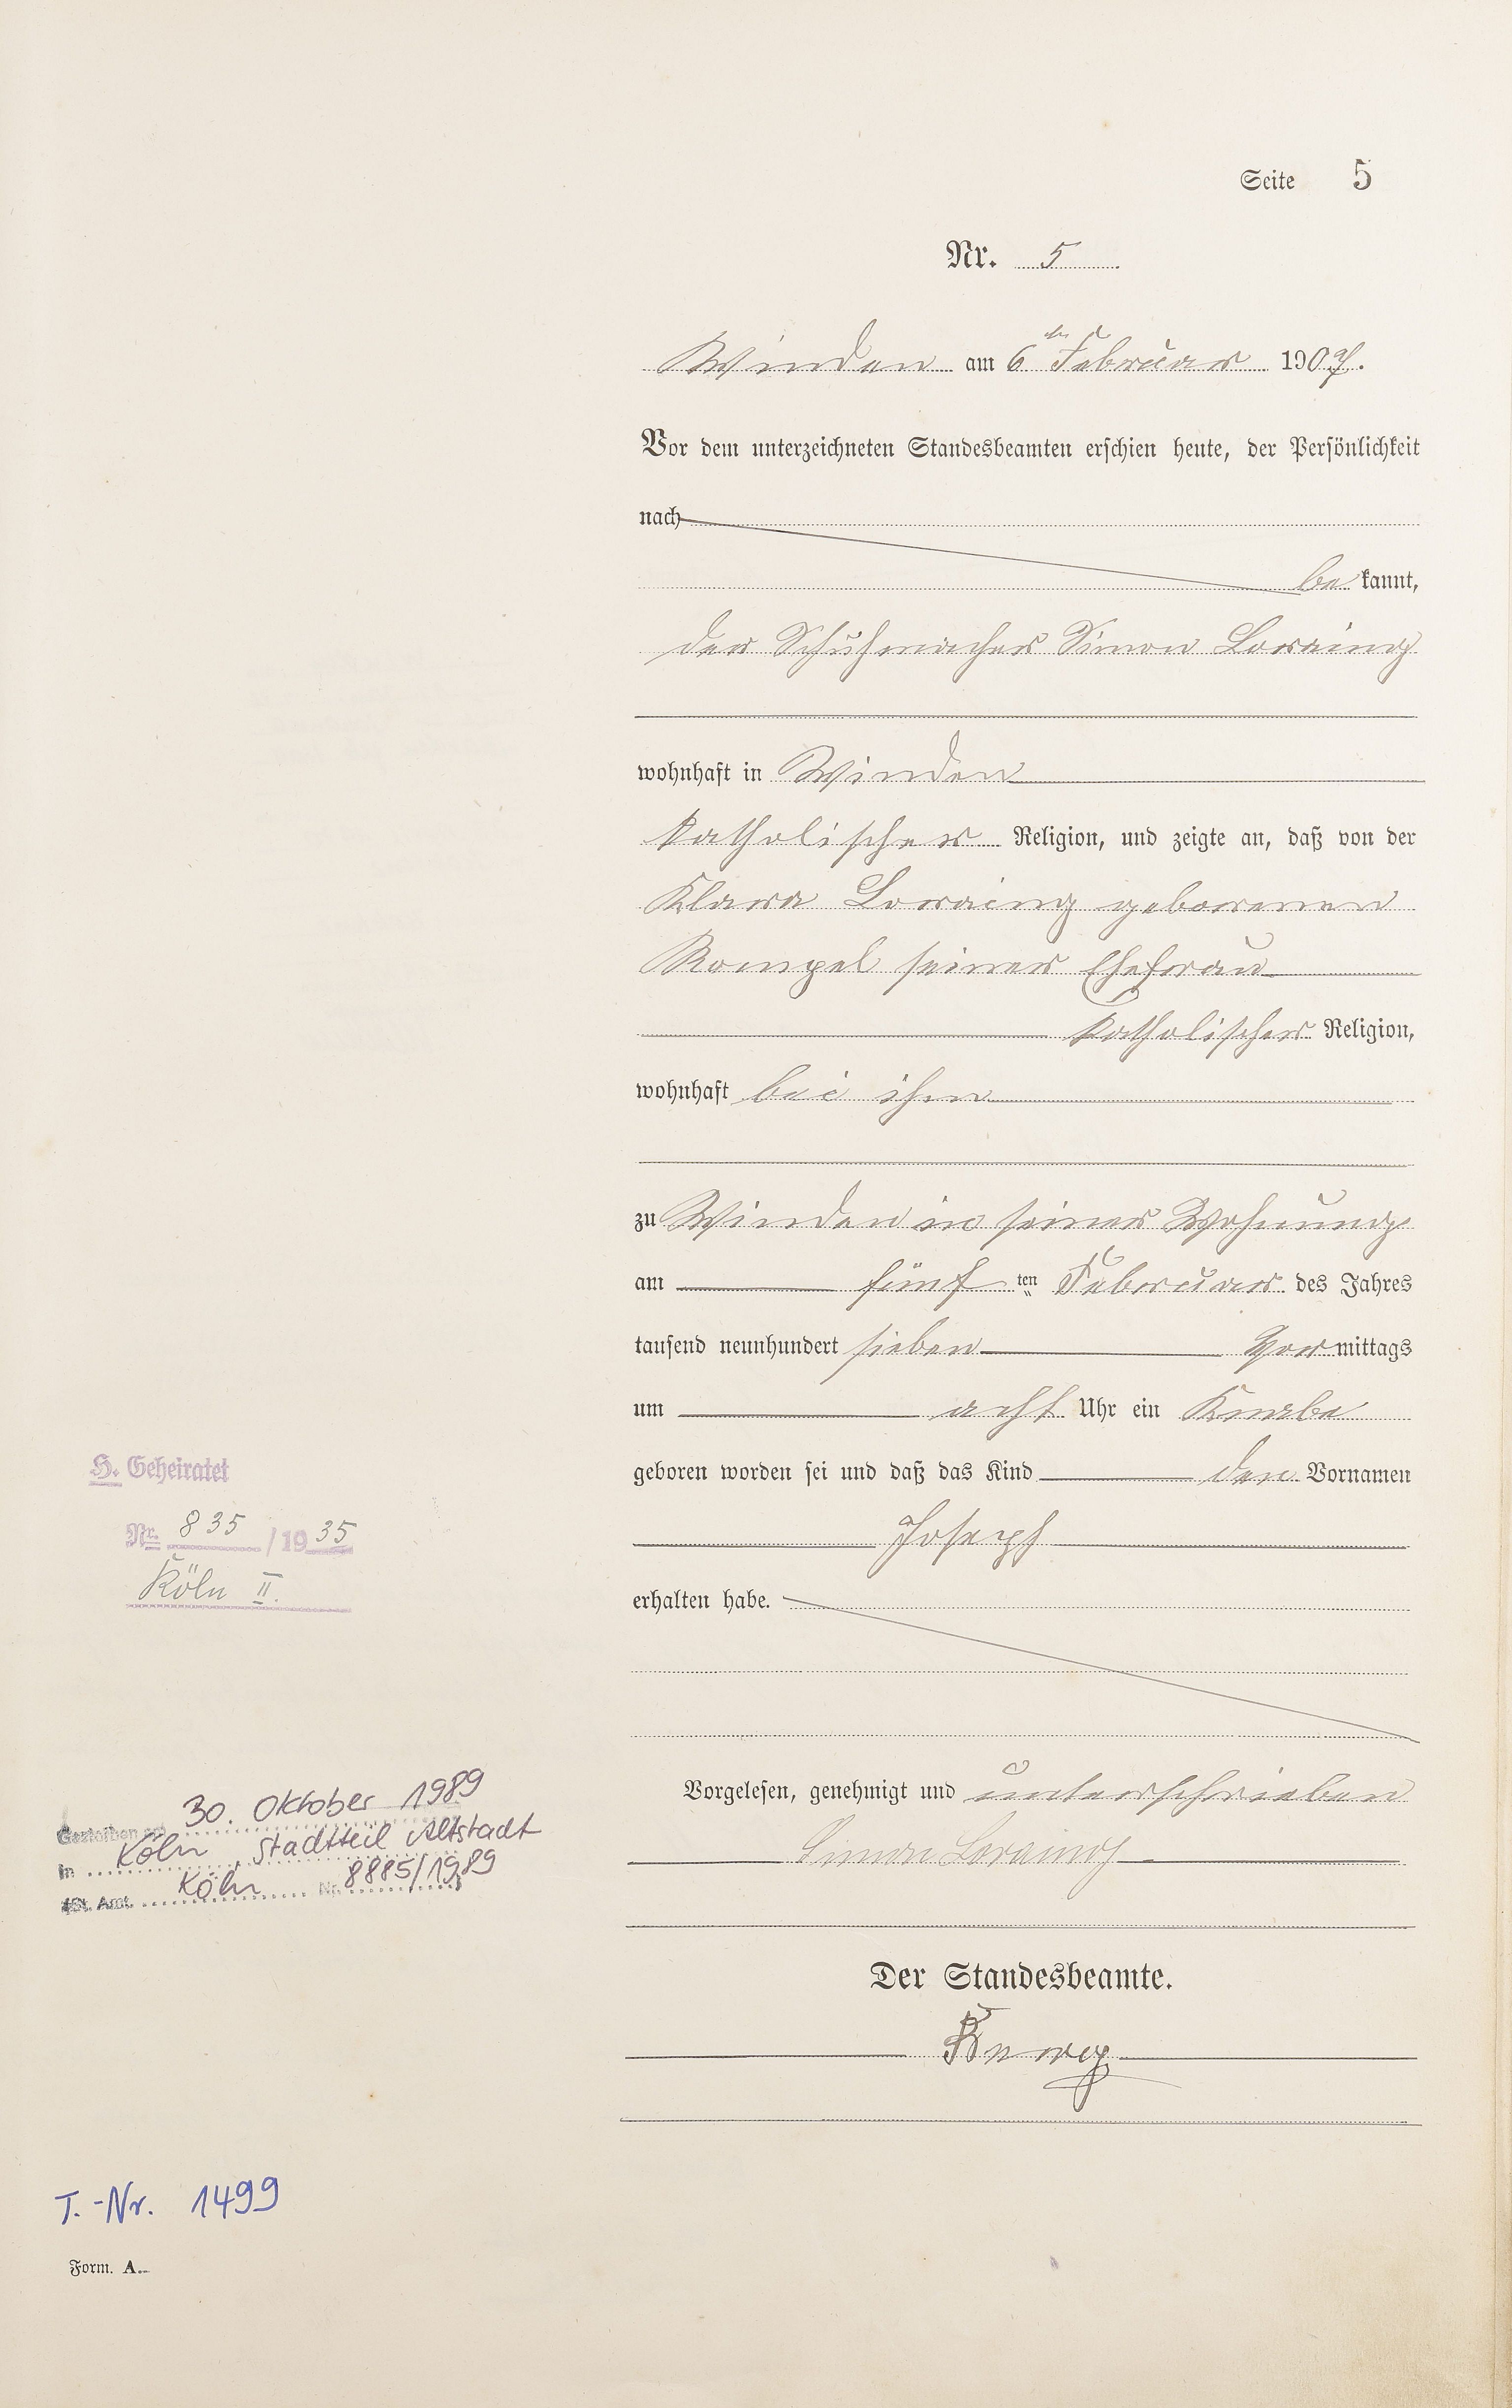 Seite 5
Nr. 5
Winden am 6ten Februar 1907.
Vor dem unterzeichneten Standesbeamten erschien heute, der Persönlichkeit
nach
bekannt,
der Schuhmacher Simon Loraing
wohnhaft in Winden
katholischer Religion, und zeigte an, daß von der
Klara Loraing geborenen
Rompel seiner Ehefrau
katholischer Religion,
wohnhaft bei ihm
zu Winden in seiner Wohnung
am fünf ten Februar des Jahres
tausend neunhundert sieben Vormittags
um acht Uhr ein Knabe
geboren worden sei und daß das Kind den Vornamen
Joseph
erhalten habe.
Vorgelesen, genehmigt und unterschrieben
Simon Loraing
Der Standesbeamte.
H. Geheiratet
Nr. 835 / 1935
Köln II.
Gestorben am 30. Oktober 1989
in Köln, Stadtteil Altstadt
St. Amt. Köln Nr. 8885/1989
T.-Nr. 1499
Form. A.